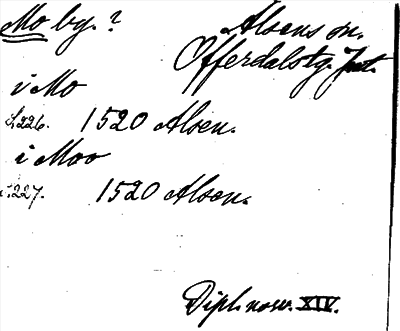 Mo by. ?
Alsens sn.
Offerdalstg. Jtl.
i Mo
s. 226. 1520 Alsen.
i Moo
s. 227. 1520 Alsen.
Dipl. norv. XIV.